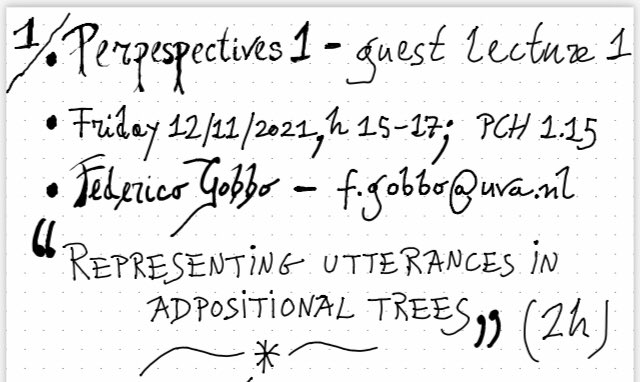 1/. Perpespectives 1 - guest lecture 1
• Friday 12/11/2021, h 15-17; PCH 1.15
• Federico Gobbo - f.gobbo@uva.nl
“REPRESENTING UTTERANCES IN
ADPOSITIONAL TREES„ (2h)
*